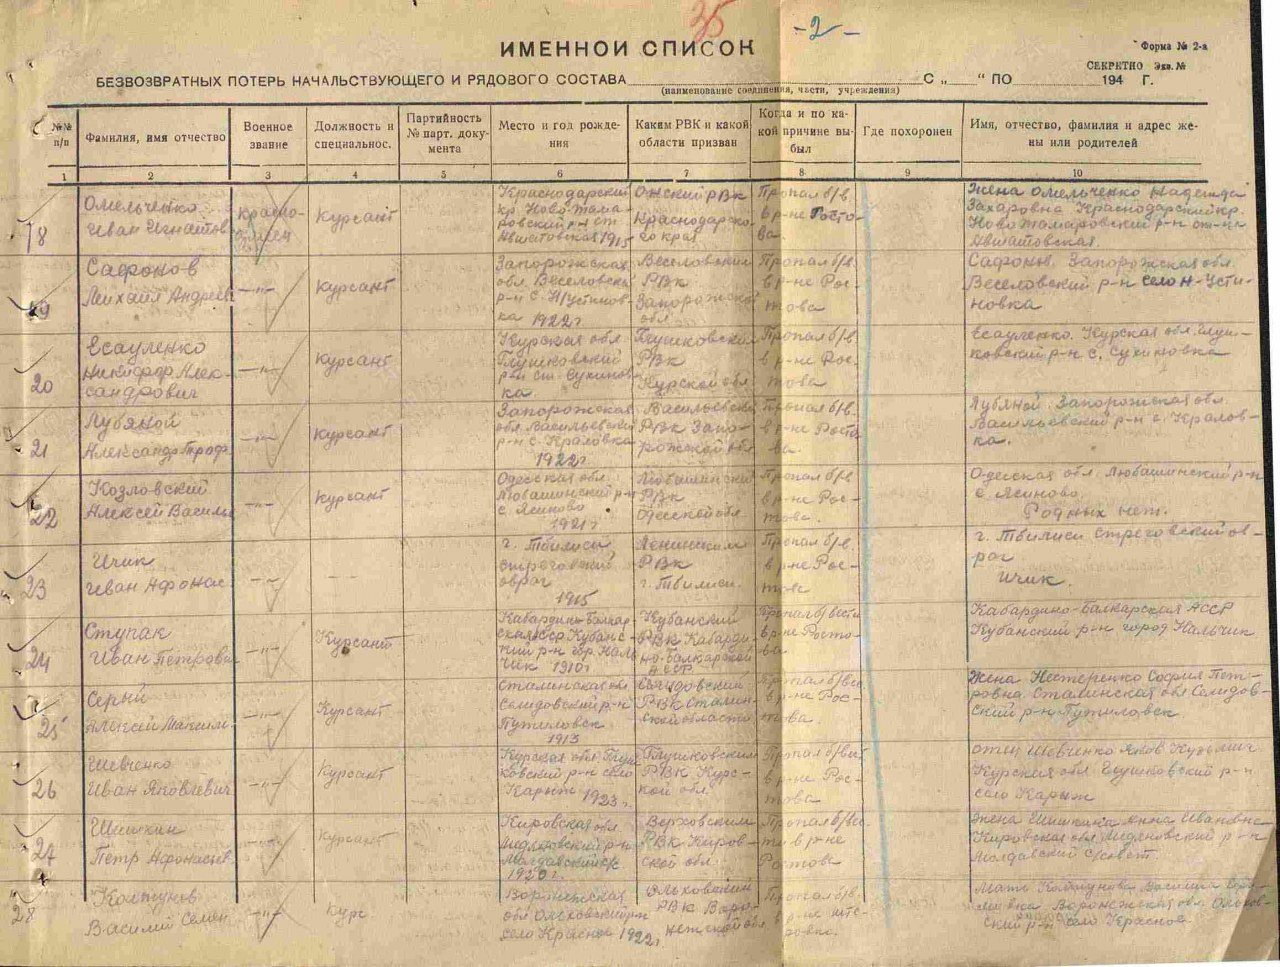 35
-2-
ИМЕННОЙ СПИСОК
Форма № 2-а
СЕКРЕТНО Экз. №
БЕЗВОЗВРАТНЫХ ПОТЕРЬ НАЧАЛЬСТВУЮЩЕГО И РЯДОВОГО СОСТАВА С „ “ ПО 194 Г.
(наименование соединения, части, учреждения)
№№ п/п
Фамилия, имя отчество
Военное звание
Должность и специальнос.
Партийность № парт. доку-
мента
Место и год рожде-
ния
Каким РВК и какой области призван
Когда и по ка-
кой причине вы-
был
Где похоронен
Имя, отчество, фамилия и адрес же-
ны или родителей
1 2 3 4 5 6 7 8 9 10
18
Омельченко
Иван Игнатов
красно-
Курсант
Краснодарский
кр. Ново-
1915
РВК
Краснодарско-
го края
Пропал б/в.
в р-не Росто-
ва.
Жена Омельченко Надежда
Захаровна Краснодарский кр.
19
Сафонов
Михаил Андреев
-"-
Курсант
Запорожская
обл. Веселовск
р-н с. Н/Устинов-
ка 1922г.
Веселовский
РВК
Запорожской
обл.
Пропал б/в.
в р-не Рос-
това
Сафонов. Запорожская обл.
Веселовский р-н село Н-Усти-
новка
20
Есауленко
Никифор Алек-
сандрович
-"-
Курсант
Курская обл.
Глушковский
р-н с. Сухинов-
ка.
Глушковский
РВК
Курской обл.
Пропал б/в.
в р-не Рос-
това
Есауленко. Курская обл. Глуш-
ковский р-н с. Сухиновка
21
Лубяной
Александр Троф.
-"-
Курсант
Запорожская
обл. Васильевский
р-н с.
1922г.
Васильевский
РВК Запо-
рожской обл.
Пропал б/в.
в р-не Росто
ва.
Лубяной. Запорожская обл.
Васильевский р-н с.
22
Козловский
Алексей Василь
-"-
Курсант
Одесская обл.
Любашинский р-н
с. Ясиново
1921г.
Любашинский
РВК
Одесской обл.
Пропал б/в.
в р-не Рос-
това.
Одесская обл. Любашинский р-н
с. Ясиново.
Родных нет.
23
Ичик
Иван Афонас.
-"-
- -
г. Тбилиси
овраг
1915
Ленинским
РВК
г. Тбилиси.
Пропал б/в.
в р-не Рос-
това
г. Тбилиси ов-
раг
Ичик.
24
Ступак
Иван Петрович
-"-
Курсант
Кабардино-Балкар
ская АССР Кубанс-
кий р-н гор. Наль
чик 1910г.
Кубанский
РВК Кабарди-
но-Балкарской
АССР
Пропал б/вести
в р-не Росто-
ва
Кабардино-Балкарская АССР
Кубанский р-н город Нальчик
25
Серый
Алексей Максим
-"-
Курсант
Сталинская обл.
Селидовский р-н
Путиловск
1913
Селидовский
РВК Сталин-
ской области
Пропал б/вес
в р-не Рос-
това.
Жена Нестеренко София Пет-
ровна Сталинская обл Селидов-
ский р-н Путиловск
26
Шевченко
Иван Яковлевич
-"-
Курсант
Курская обл. Глуш
ковский р-н село
Карыж 1923г.
Глушковским
РВК Курс-
кой обл.
Пропал б/вест
в р-не Рос-
това
отец Шевченко Яков Кузьмич
Курская обл. Глушковский р-н
село Карыж
27
Шишкин
Петр Афонасьев
-"-
Курсант
Кировская обл.
р-н
1920г.
Верховским
РВК Киров-
ской обл.
Пропал б/вес.
в р-не
Ростова
Жена Шишкина Анна Ивановна
Кировская обл. р-н
28
Колтунов
Василий Семен
-"-
Курс.
Воронежская
обл. Ольховский р-н
село Красное 1922г.
Ольховский
РВК Воро-
нежской обл.
Пропал б/в.
Мать Колтунова
Воронежская обл. Ольхов-
ский р-н село Красное